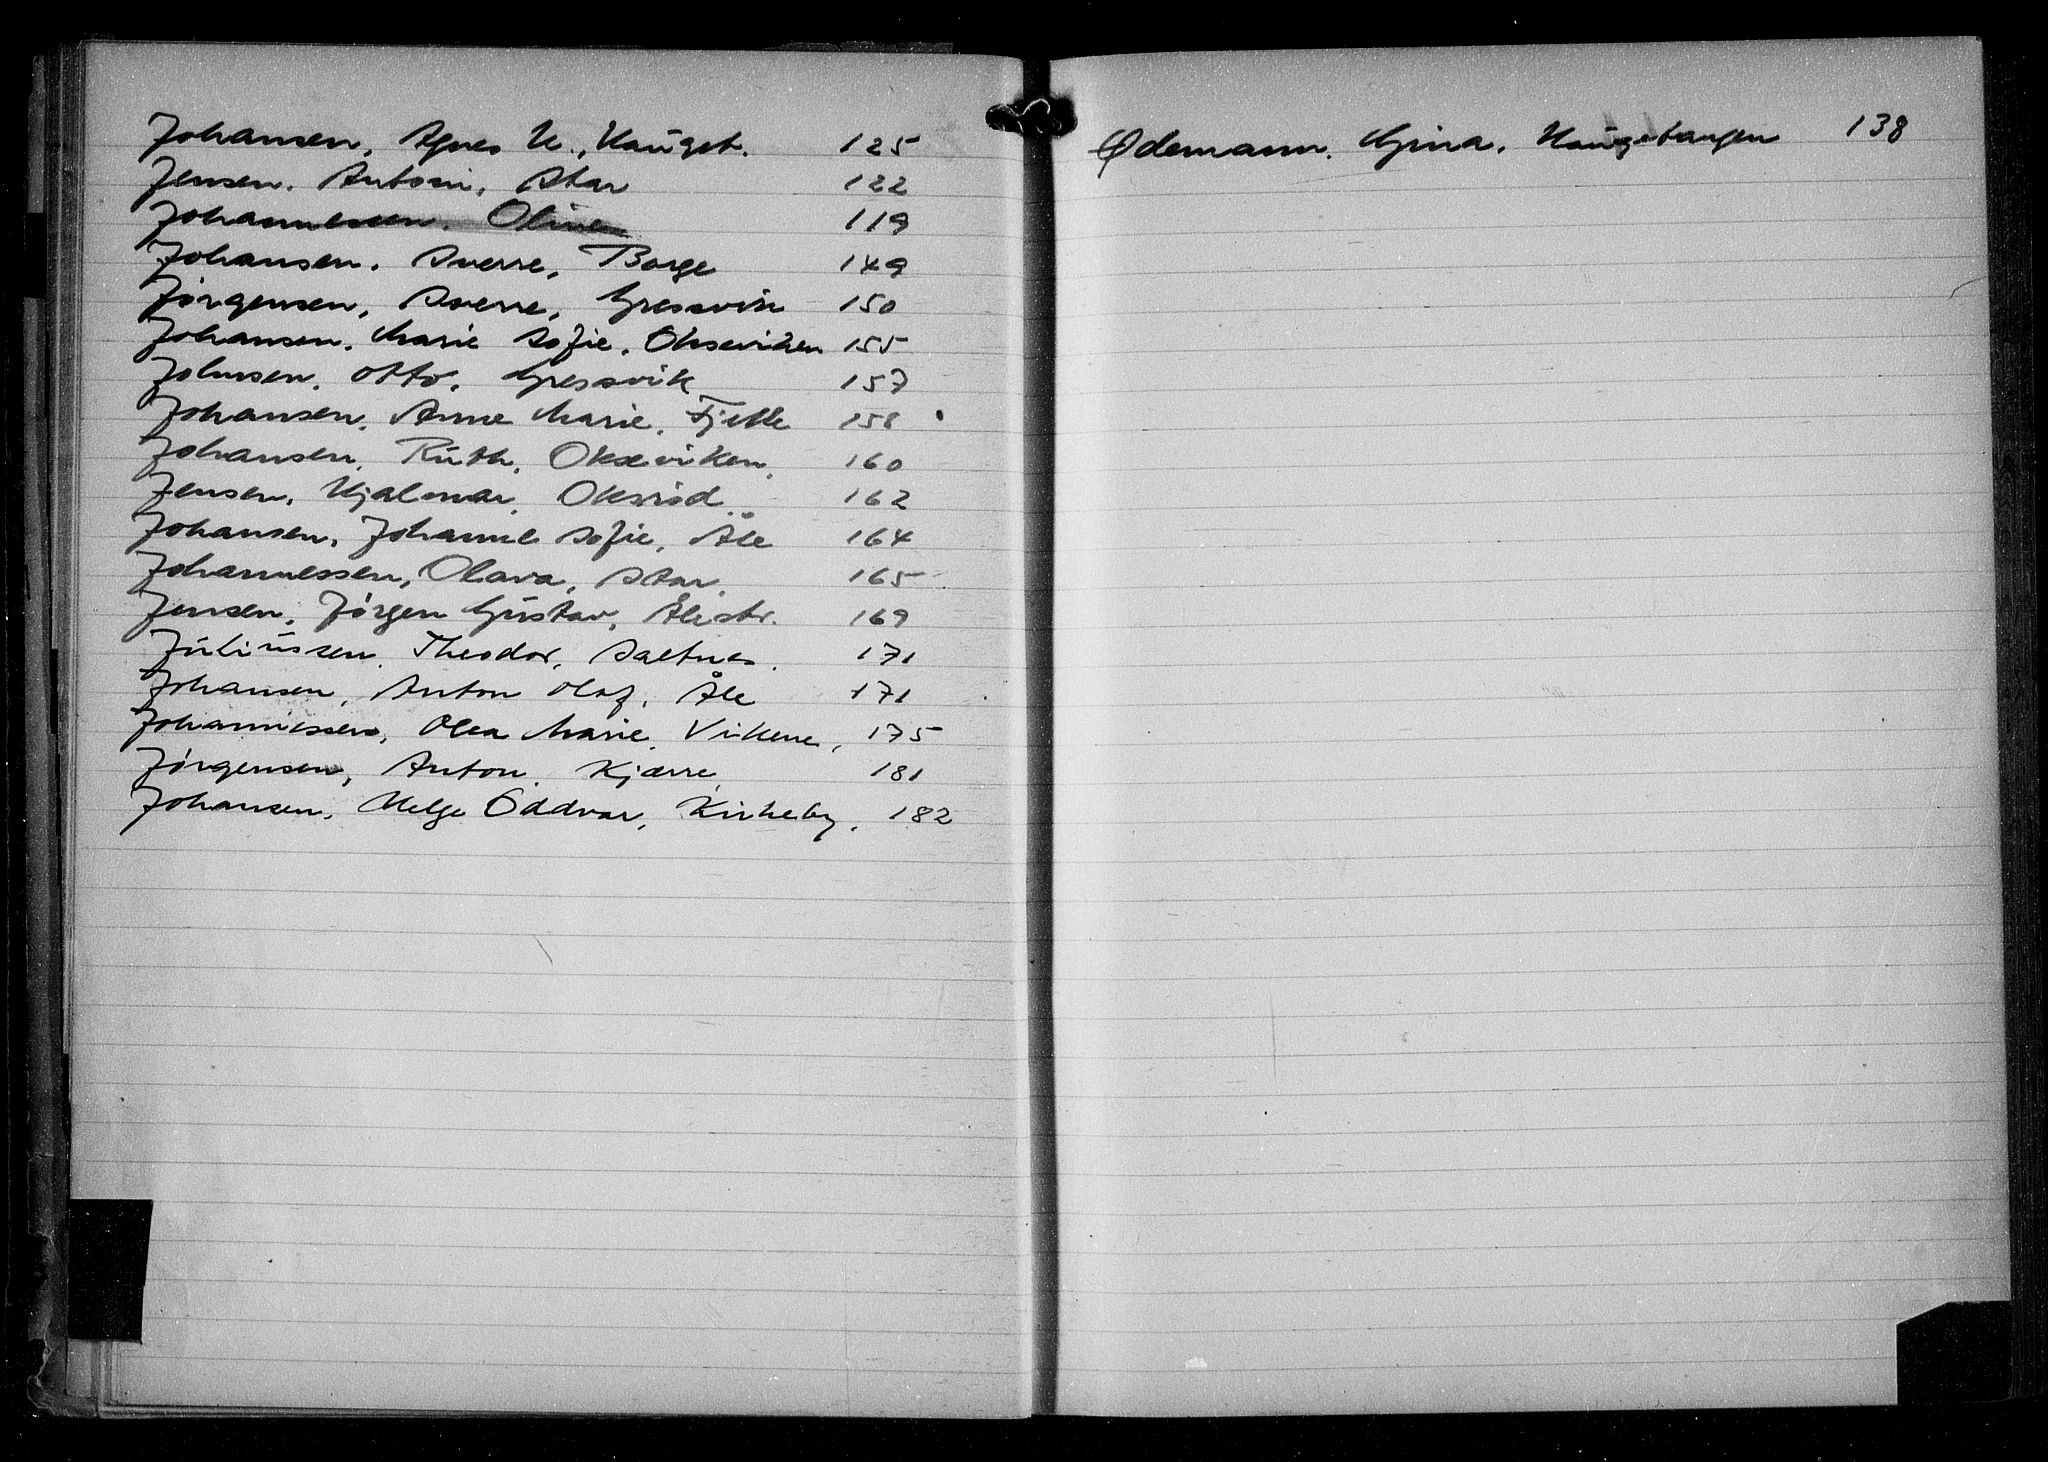 Johansen, Agnes H., Haugeb. 125
Jensen, Antoni, Star 122
Johannessen, Oline 119
Johansen, Sverre, Borge 149
Jørgensen, Sverre, Gressvik 150
Johansen, Marie Sofie, Okseviken 155
Johnsen, Otto, Gressvik 157
Johansen, Anne Marie, Fjelle 158
Johansen, Ruth, Okseviken, 160
Jensen, Hjalmar, Oksrød 162
Johansen, Johanne Sofie, Åle 164
Johannessen, Olava, Star, 165
Jensen, Jørgen Gustav, Ålestr. 169
Juliussen, Theodor, Saltnes. 171
Johansen, Anton Olaf, Åle 171
Johannessen, Olea Marie, Vikene, 175
Jørgensen, Anton, Kjærre, 181
Johansen, Helge Oddvar, Kirkeby, 182
Ødemann, Gina, Haugetangen 138